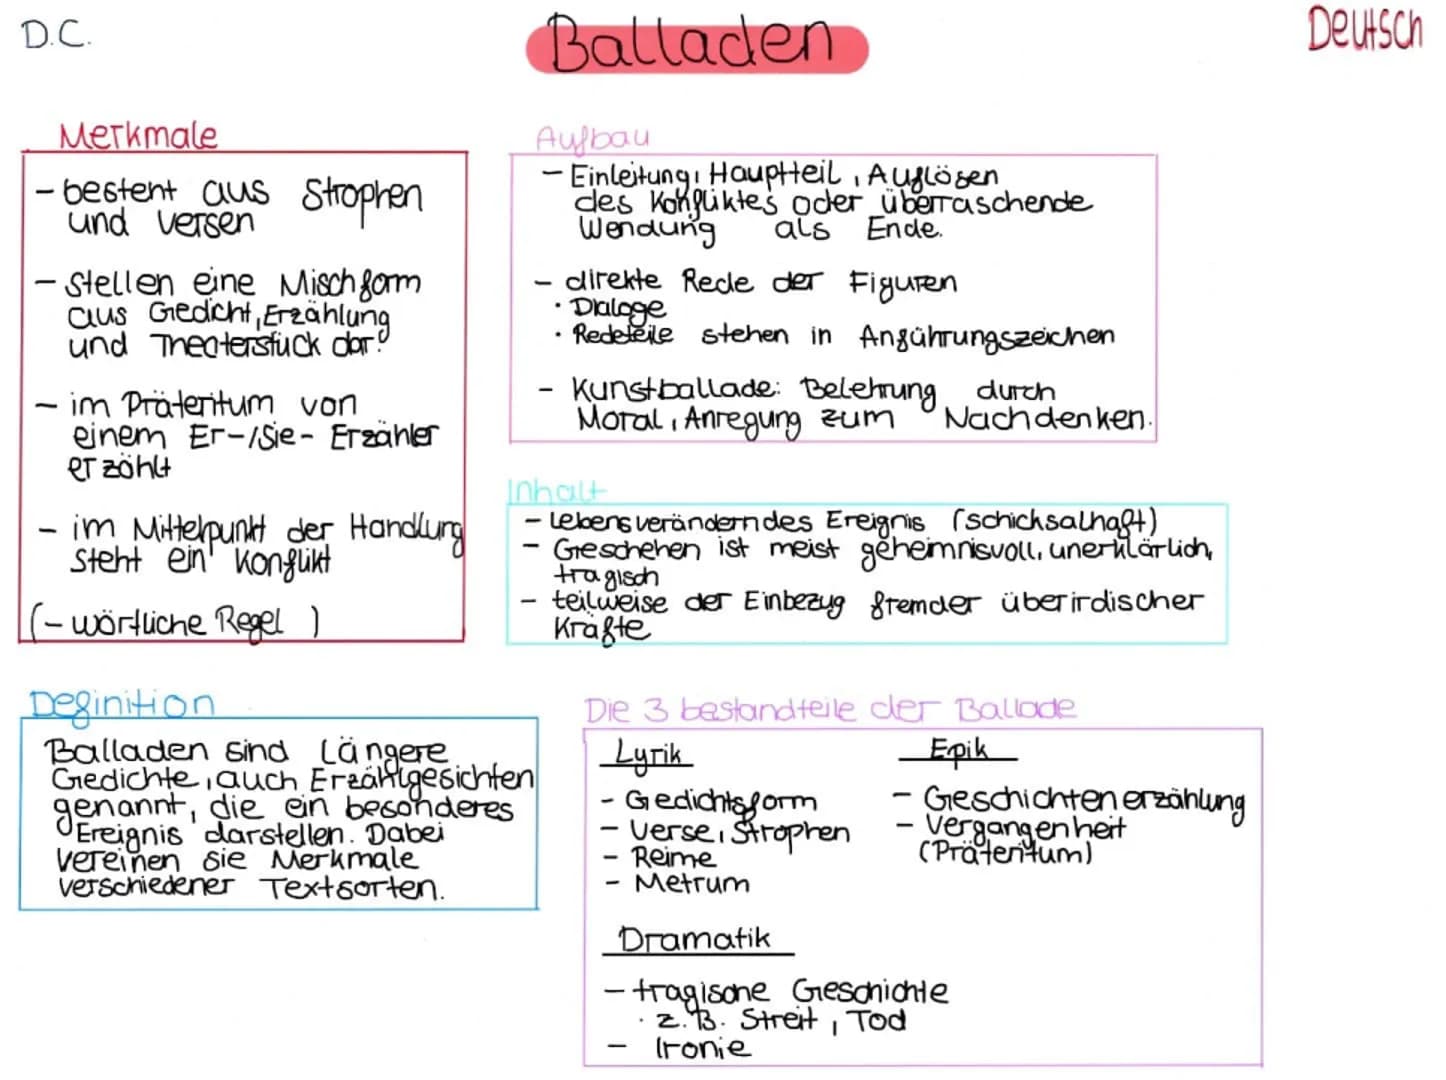 D.C.
Balladen
Deutsch
Merkmale
- besteht aus Strophen
und Versen
- stellen eine Mischform
aus Gedicht, Erzählung
und Theaterstück dar!
- im Präteritum von
einem Er-/Sie- Erzähler
erzählt
- im Mittelpunkt der Handlung
steht ein Konflikt
(- wörtliche Regel )
Aufbau
- Einleitung, Hauptteil, Auflösen
des Konfliktes oder überraschende
Wendung als Ende.
- direkte Rede der Figuren
· Dialoge
· Redeteile stehen in Anführungszeichen
- Kunstballade: Belehrung durch
Moral, Anregung zum Nachdenken.
Inhalt
- Lebensveränderndes Ereignis (schicksalhaft)
- Geschehen ist meist geheimnisvoll, unerklärlich,
tragisch
- teilweise der Einbezug fremder überirdischer
Kräfte
Definition
Balladen sind Längere
Gedichte, auch Erzählgesichten
genannt, die ein besonderes
Ereignis darstellen. Dabei
vereinen sie Merkmale
verschiedener Textsorten.
Die 3 bestandteile der Ballade
Lyrik
- Gedichtsform
- Verse, Strophen
- Reime
- Metrum
Epik
- Geschichtenerzählung
- Vergangenheit
(Präteritum)
Dramatik
- tragische Geschichte
· z.B. Streit, Tod
- Ironie